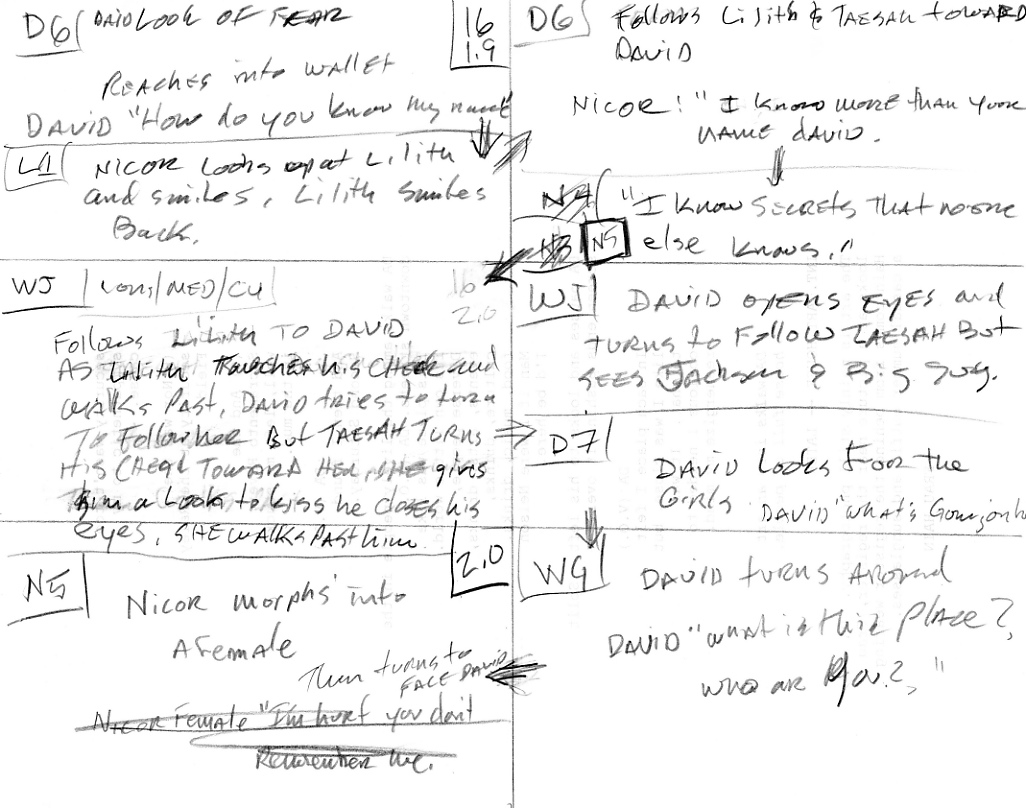 D6 DAVID LOOK OF FEAR
REACHES into WALLET
DAVID "How do you know my name"
16
1.9
D6 Follows Lilith & TAESAH toward
DAVID
NICOR: "I know more than your
NAME david.
L1 NICOR Looks at Lilith
and smiles, Lilith smiles
Back.
N4 "I know SECRETS THAT no one
N3 N5 else knows."
WJ LONG/MED/CU
16
2.0
Follows Lilith TO DAVID
AS Lilith Touches his CHEEK and
walks Past, DAVID tries to turn
To Follow her But TAESAH TURNS
His CHEEK TOWARD HER, SHE gives
him a Look to kiss he closes his
eyes, SHE WALKS PAST him.
WJ DAVID opens EYES and
TURNS to Follow TAESAH But
SEES Jackson & Big Guy.
D7
DAVID Looks For the
Girls DAVID "what's Going on
N5
2.0
Nicor morphs into
A Female
Then turns to
FACE DAVID
Nicor Female "I'm hurt you don't
Remember me.
WG DAVID turns Around
DAVID "what is this place?,
who are You?,"